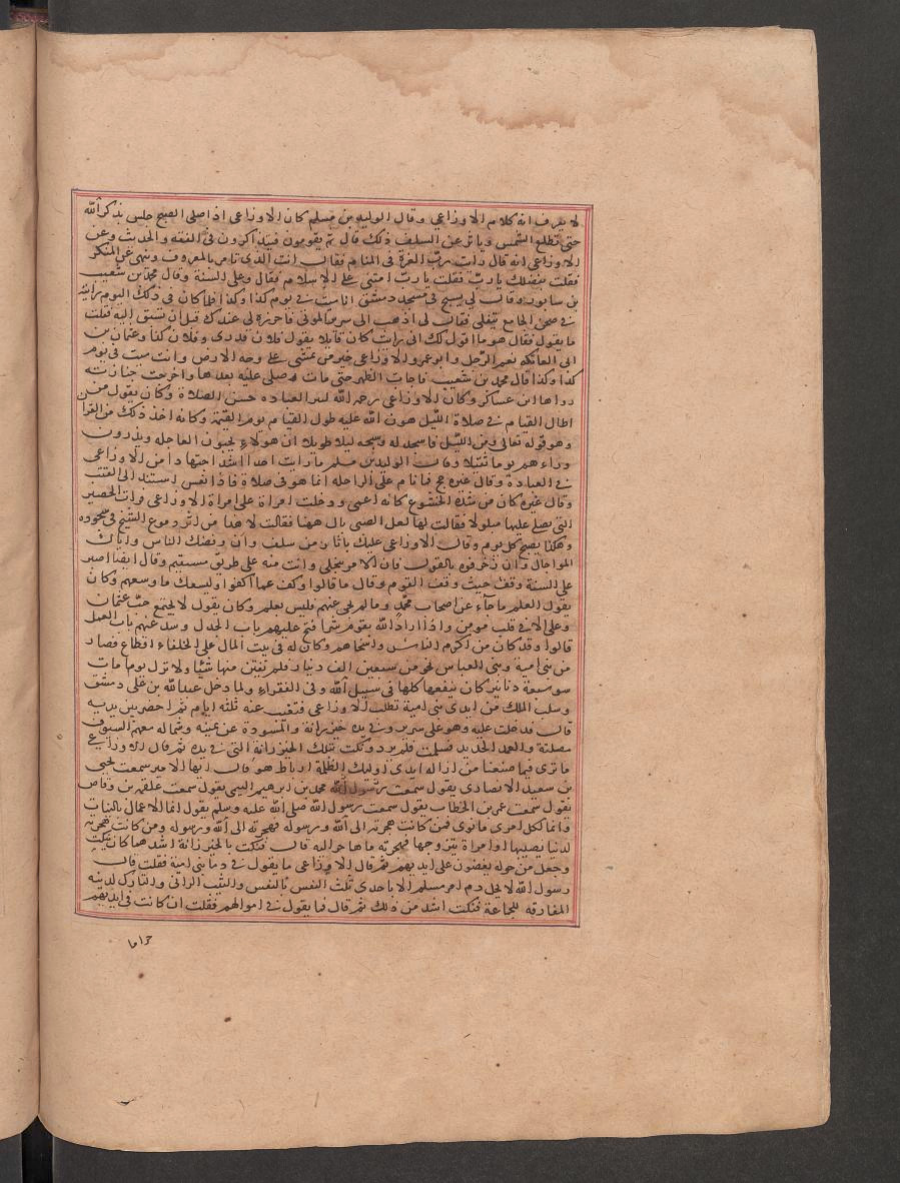 لا يعرف انه كلام الاوزاعي وقال الوليد بن مسلم كان الاوزاعي اذا صلى الصبح جلس يذكر الله
حتى تطلع الشمس وياثر عن السلف ذلك قال ثم يقومون فيتذاكرون في الفقه والحديث وعن
الاوزاعي انه قال رايت رب العزة في المنام فقال انت الذي تامر بالمعروف وتنهى عن المنكر
فقلت بفضلك يا رب فقلت يا رب امتني على الاسلام فقال وعلى السنة وقال محمد بن شعيب
بن سابور قال لي شيخ في مسجد دمشق انا ميت في يوم كذا وكذا فلما كان في ذلك اليوم رايته
في صحن الجامع يتفلى فقال لي اذهب الى سرير الموتى فاحرزه لي عندك قبل ان تسبق اليه فقلت
ما يقول فقال هو ما اقول لك اني رايت كان قايلا يقول فلان قدري وفلان كذا وعثمان بن
ابي العاتكه نعم الرجل وابو عمرو الاوزاعي خير من يمشي على وجه الارض وانت ميت في يوم
كذا وكذا قال محمد بن شعيب فما جاءت الظهر حتى مات وصلى عليه بعدها واخرجت جنازته
رواها ابن عساكر وكان الاوزاعي رحمه الله كثير العباده حسن الصلاة وكان يقول من
اطال القيام في صلاة الليل هون الله عليه طول القيام يوم القيمة وكانه اخذ ذلك من القرا
وهو قوله تعالى ومن الليل فاسجد له وسبحه ليلا طويلا ان هولاء يحبون العاجله ويذرون
وراءهم يوما ثقيلا وقال الوليد بن مسلم ما رايت احدا اشد اجتهادا من الاوزاعي
في العبادة وقال غيره حج فما نام على الراحله انما هو في صلاة فاذا نعس استند الى القتب
وقال غيره كان من شدة الخشوع كانه اعمى ودخلت امراة على امراة الاوزاعي فرات الحصير
التي يصلي عليها مبلولا فقالت لها لعل الصبي بال ههنا فقالت لا هذا من اثر دموع الشيخ في سجوده
وهكذا يصبح كل يوم وقال الاوزاعي عليك باثار من سلف وان رفضك الناس واياك
اقوال الرجال وان زخرفوه بالقول فان الامر ينجلي وانت منه على طريق مستقيم وقال ايضا اصبر
على السنة وقف حيث وقف القوم وقل ما قالوا وكف عما كفوا وليسعك ما وسعهم وكان
يقول العلم ما جاء عن اصحاب محمد وما لم يجئ عنهم فليس بعلم وكان يقول لا يجتمع حب عثمان
وعلي الا في قلب مومن واذا اراد الله بقوم شرا فتح عليهم باب الجدل وسد عنهم باب العمل
قالوا وقد كان من اكرم الناس واسخاهم وكان له في بيت المال على الخلفاء اقطاع فصار
من بني امية وبني العباس نحو من سبعين الف دينار فلم يقتن منها شيئا ولا ترك يوم مات
سوى سبعة دنانير كان ينفقها كلها في سبيل الله وفي الفقراء ولما دخل عبد الله بن علي دمشق
وسلب الملك من ايدي بني امية تطلب الاوزاعي فتغيب عنه ثلثة ايام ثم احضر بين يديه
قال فدخلت عليه وهو على سرير وفي يده خيزرانة والمسودة عن يمينه وشماله معهم السيوف
مصلتة والعمد الحديد فسلمت فلم يرد ونكت بتلك الخيزرانة التي في يده ثم قال يا اوزاعي
ما ترى فيما صنعنا من ازاله ايدي اوليك الظلمة ارباط هو قال ايها الامير سمعت يحيى
بن سعيد الانصاري يقول سمعت محمد بن ابرهيم التيمي يقول سمعت علقمه بن وقاص
يقول سمعت عمر بن الخطاب يقول سمعت رسول الله صلى الله عليه وسلم يقول انما الاعمال بالنيات
وانما لكل امرئ ما نوى فمن كانت هجرته الى الله ورسوله فهجرته الى الله ورسوله ومن كانت هجرته
لدنيا يصيبها او امراة يتزوجها فهجرته الى ما هاجر اليه قال فنكت بالخيزرانة اشد مما كان ينكت
وجعل من حوله يعضون على ايديهم ثم قال يا اوزاعي ما يقول في دما بني امية فقلت قال
رسول الله لا يحل دم امرء مسلم الا باحدى ثلث النفس بالنفس والثيب الزاني والتارك لدينه
المفارق للجماعة فنكت اشد من ذلك ثم قال فما يقول في اموالهم فقلت ان كانت في ايديهم
حراما